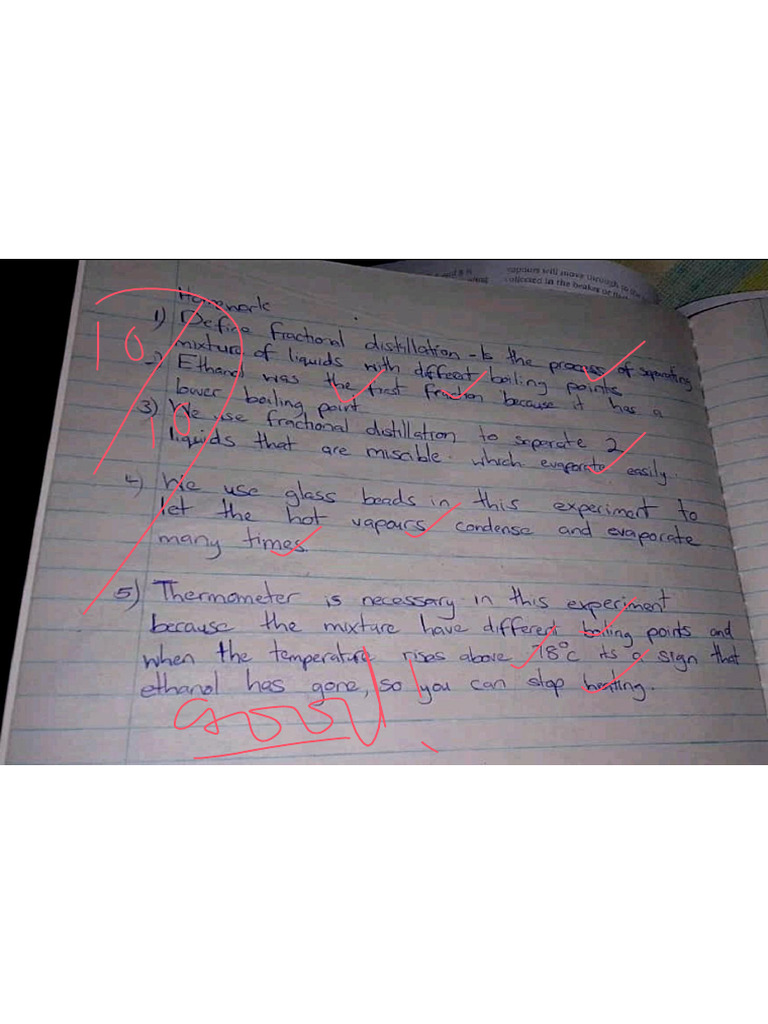 Homework
1) Define fractional distillation - Is the process of separating
mixture of liquids with different boiling points.
2) Ethanol was the first fraction because it has a
lower boiling point.
3) We use fractional distillation to separate 2
liquids that are miscible. which evaporate easily.
4) We use glass beads in this experiment to
let the hot vapours condense and evaporate
many times.
5) Thermometer is necessary in this experiment
because the mixture have different boiling points and
when the temperature rises above 78°c its a sign that
ethanol has gone, so you can stop heating.
10
10
Good!
vapours will move through to the
collected in the beaker or